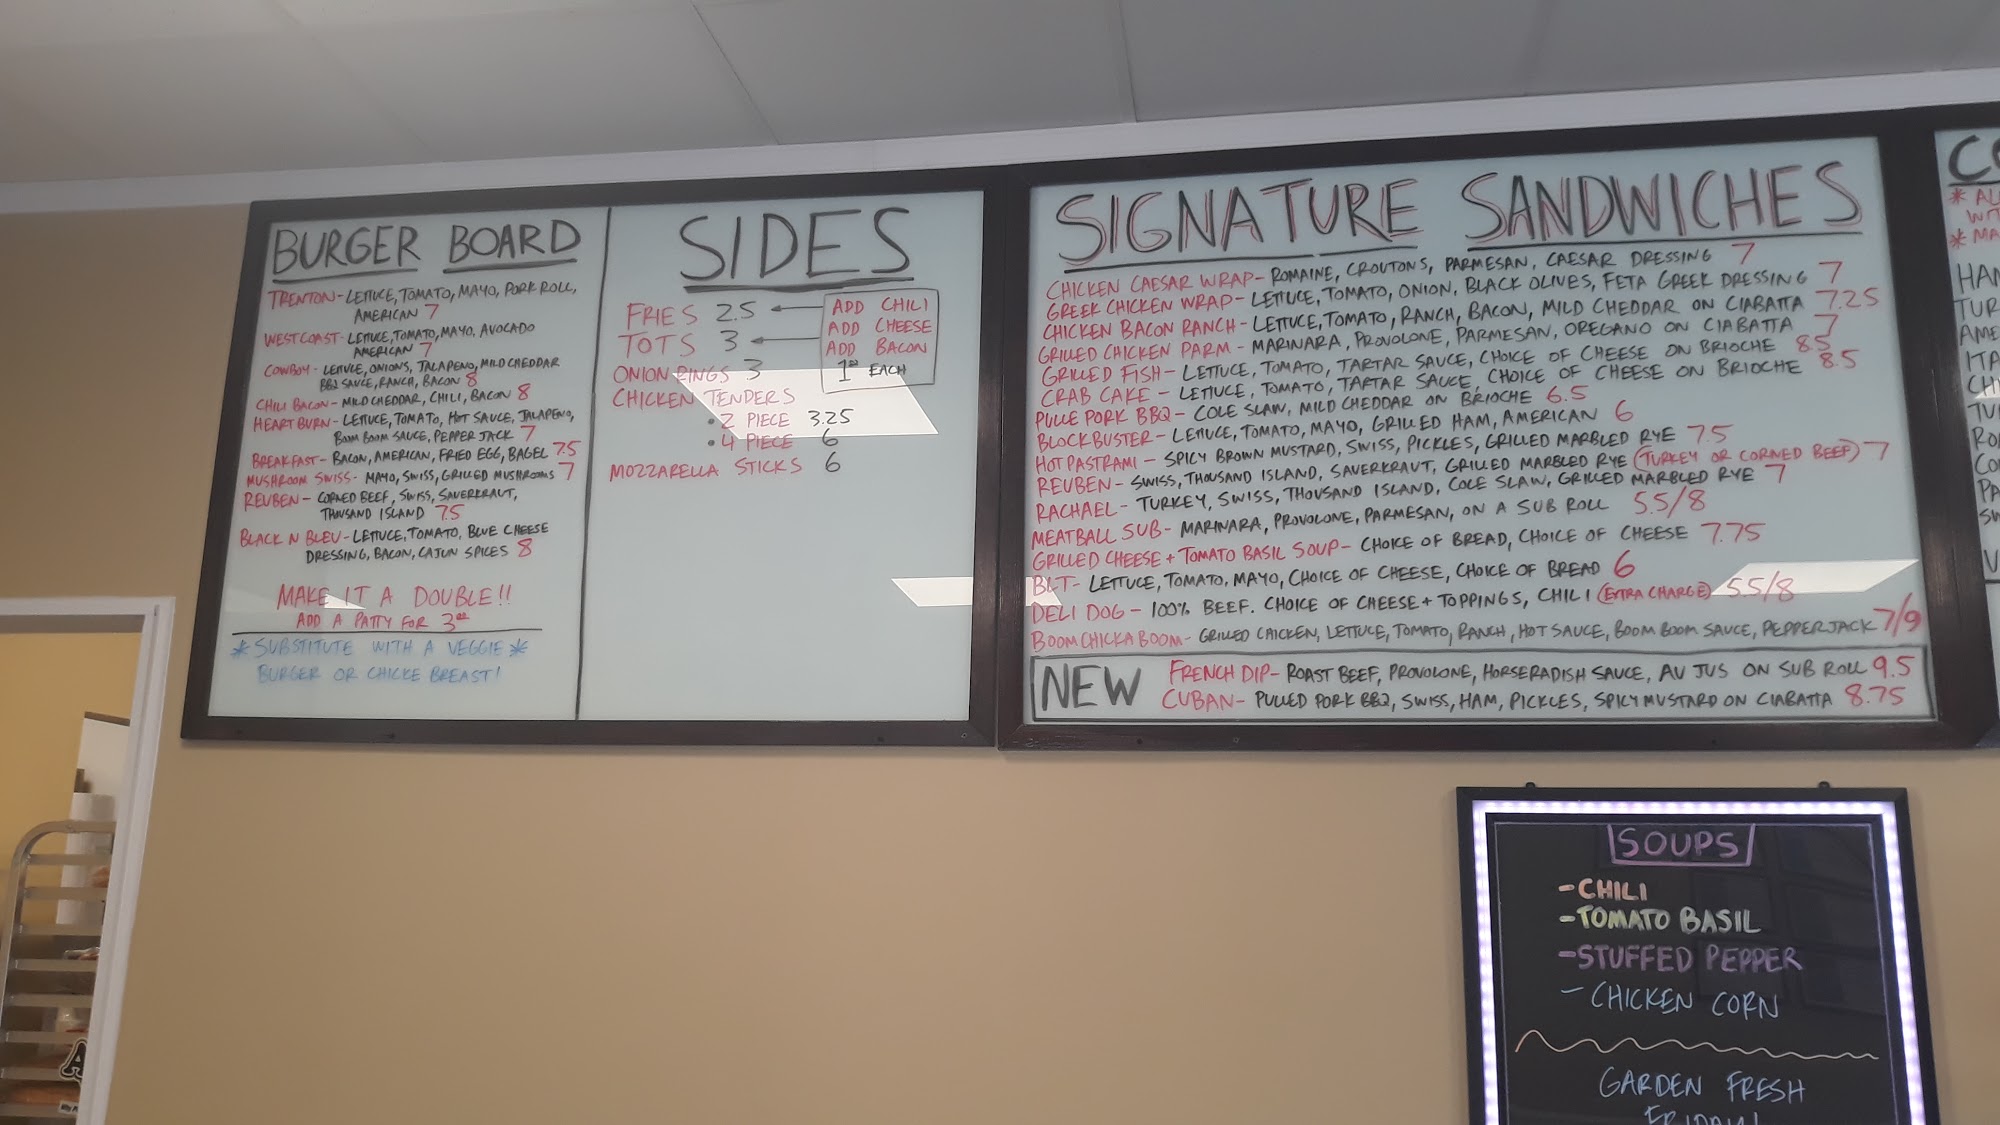 BURGER BOARD
TRENTON - LETTUCE, TOMATO, MAYO, PORK ROLL,
AMERICAN 7
WEST COAST - LETTUCE, TOMATO, MAYO, AVOCADO
AMERICAN 7
COWBOY - LETTUCE, ONIONS, JALAPENO, MILD CHEDDAR
BBQ SAUCE, RANCH, BACON 8
CHILI BACON - MILD CHEDDAR, CHILI, BACON 8
HEART BURN - LETTUCE, TOMATO, HOT SAUCE, JALAPENO,
BOOM BOOM SAUCE, PEPPER JACK 7
BREAKFAST - BACON, AMERICAN, FRIED EGG, BAGEL 7.5
MUSHROOM SWISS - MAYO, SWISS, GRILLED MUSHROOMS 7
REUBEN - CORNED BEEF, SWISS, SAUERKRAUT,
THOUSAND ISLAND 7.5
BLACK N BLEU - LETTUCE, TOMATO, BLUE CHEESE
DRESSING, BACON, CAJUN SPICES 8
MAKE IT A DOUBLE!!
ADD A PATTY FOR 3.00
* SUBSTITUTE WITH A VEGGIE *
BURGER OR CHICKE BREAST!
SIDES
FRIES 2.5
TOTS 3
ONION RINGS 3
CHICKEN TENDERS
• 2 PIECE 3.25
• 4 PIECE 6
MOZZARELLA STICKS 6
ADD CHILI
ADD CHEESE
ADD BACON
EACH
SIGNATURE SANDWICHES
CHICKEN CAESAR WRAP - ROMAINE, CROUTONS, PARMESAN, CAESAR DRESSING 7
GREEK CHICKEN WRAP - LETTUCE, TOMATO, ONION, BLACK OLIVES, FETA GREEK DRESSING 7
CHICKEN BACON RANCH - LETTUCE, TOMATO, RANCH, BACON, MILD CHEDDAR ON CIABATTA 7.25
GRILLED CHICKEN PARM - MARINARA, PROVOLONE, PARMESAN, OREGANO ON CIABATTA 7
GRILLED FISH - LETTUCE, TOMATO, TARTAR SAUCE, CHOICE OF CHEESE ON BRIOCHE 8.5
CRAB CAKE - LETTUCE, TOMATO, TARTAR SAUCE, CHOICE OF CHEESE ON BRIOCHE 8.5
PULLE PORK BBQ - COLE SLAW, MILD CHEDDAR ON BRIOCHE 6.5
BLOCKBUSTER - LETTUCE, TOMATO, MAYO, GRILLED HAM, AMERICAN 6
HOT PASTRAMI - SPICY BROWN MUSTARD, SWISS, PICKLES, GRILLED MARBLED RYE 7.5
REUBEN - SWISS, THOUSAND ISLAND, SAUERKRAUT, GRILLED MARBLED RYE (TURKEY OR CORNED BEEF) 7
RACHAEL - TURKEY, SWISS, THOUSAND ISLAND, COLE SLAW, GRILLED MARBLED RYE 7
MEATBALL SUB - MARINARA, PROVOLONE, PARMESAN, ON A SUB ROLL 5.5/8
GRILLED CHEESE + TOMATO BASIL SOUP - CHOICE OF BREAD, CHOICE OF CHEESE 7.75
BLT - LETTUCE, TOMATO, MAYO, CHOICE OF CHEESE, CHOICE OF BREAD 6
DELI DOG - 100% BEEF. CHOICE OF CHEESE + TOPPINGS, CHILI (EXTRA CHARGE) 5.5/8
BOOM CHICKA BOOM - GRILLED CHICKEN, LETTUCE, TOMATO, RANCH, HOT SAUCE, BOOM BOOM SAUCE, PEPPERJACK 7/9
NEW
FRENCH DIP - ROAST BEEF, PROVOLONE, HORSERADISH SAUCE, AU JUS ON SUB ROLL 9.5
CUBAN - PULLED PORK BBQ, SWISS, HAM, PICKLES, SPICY MUSTARD ON CIABATTA 8.75
SOUPS
- CHILI
- TOMATO BASIL
- STUFFED PEPPER
- CHICKEN CORN
GARDEN FRESH
FRIDAY!